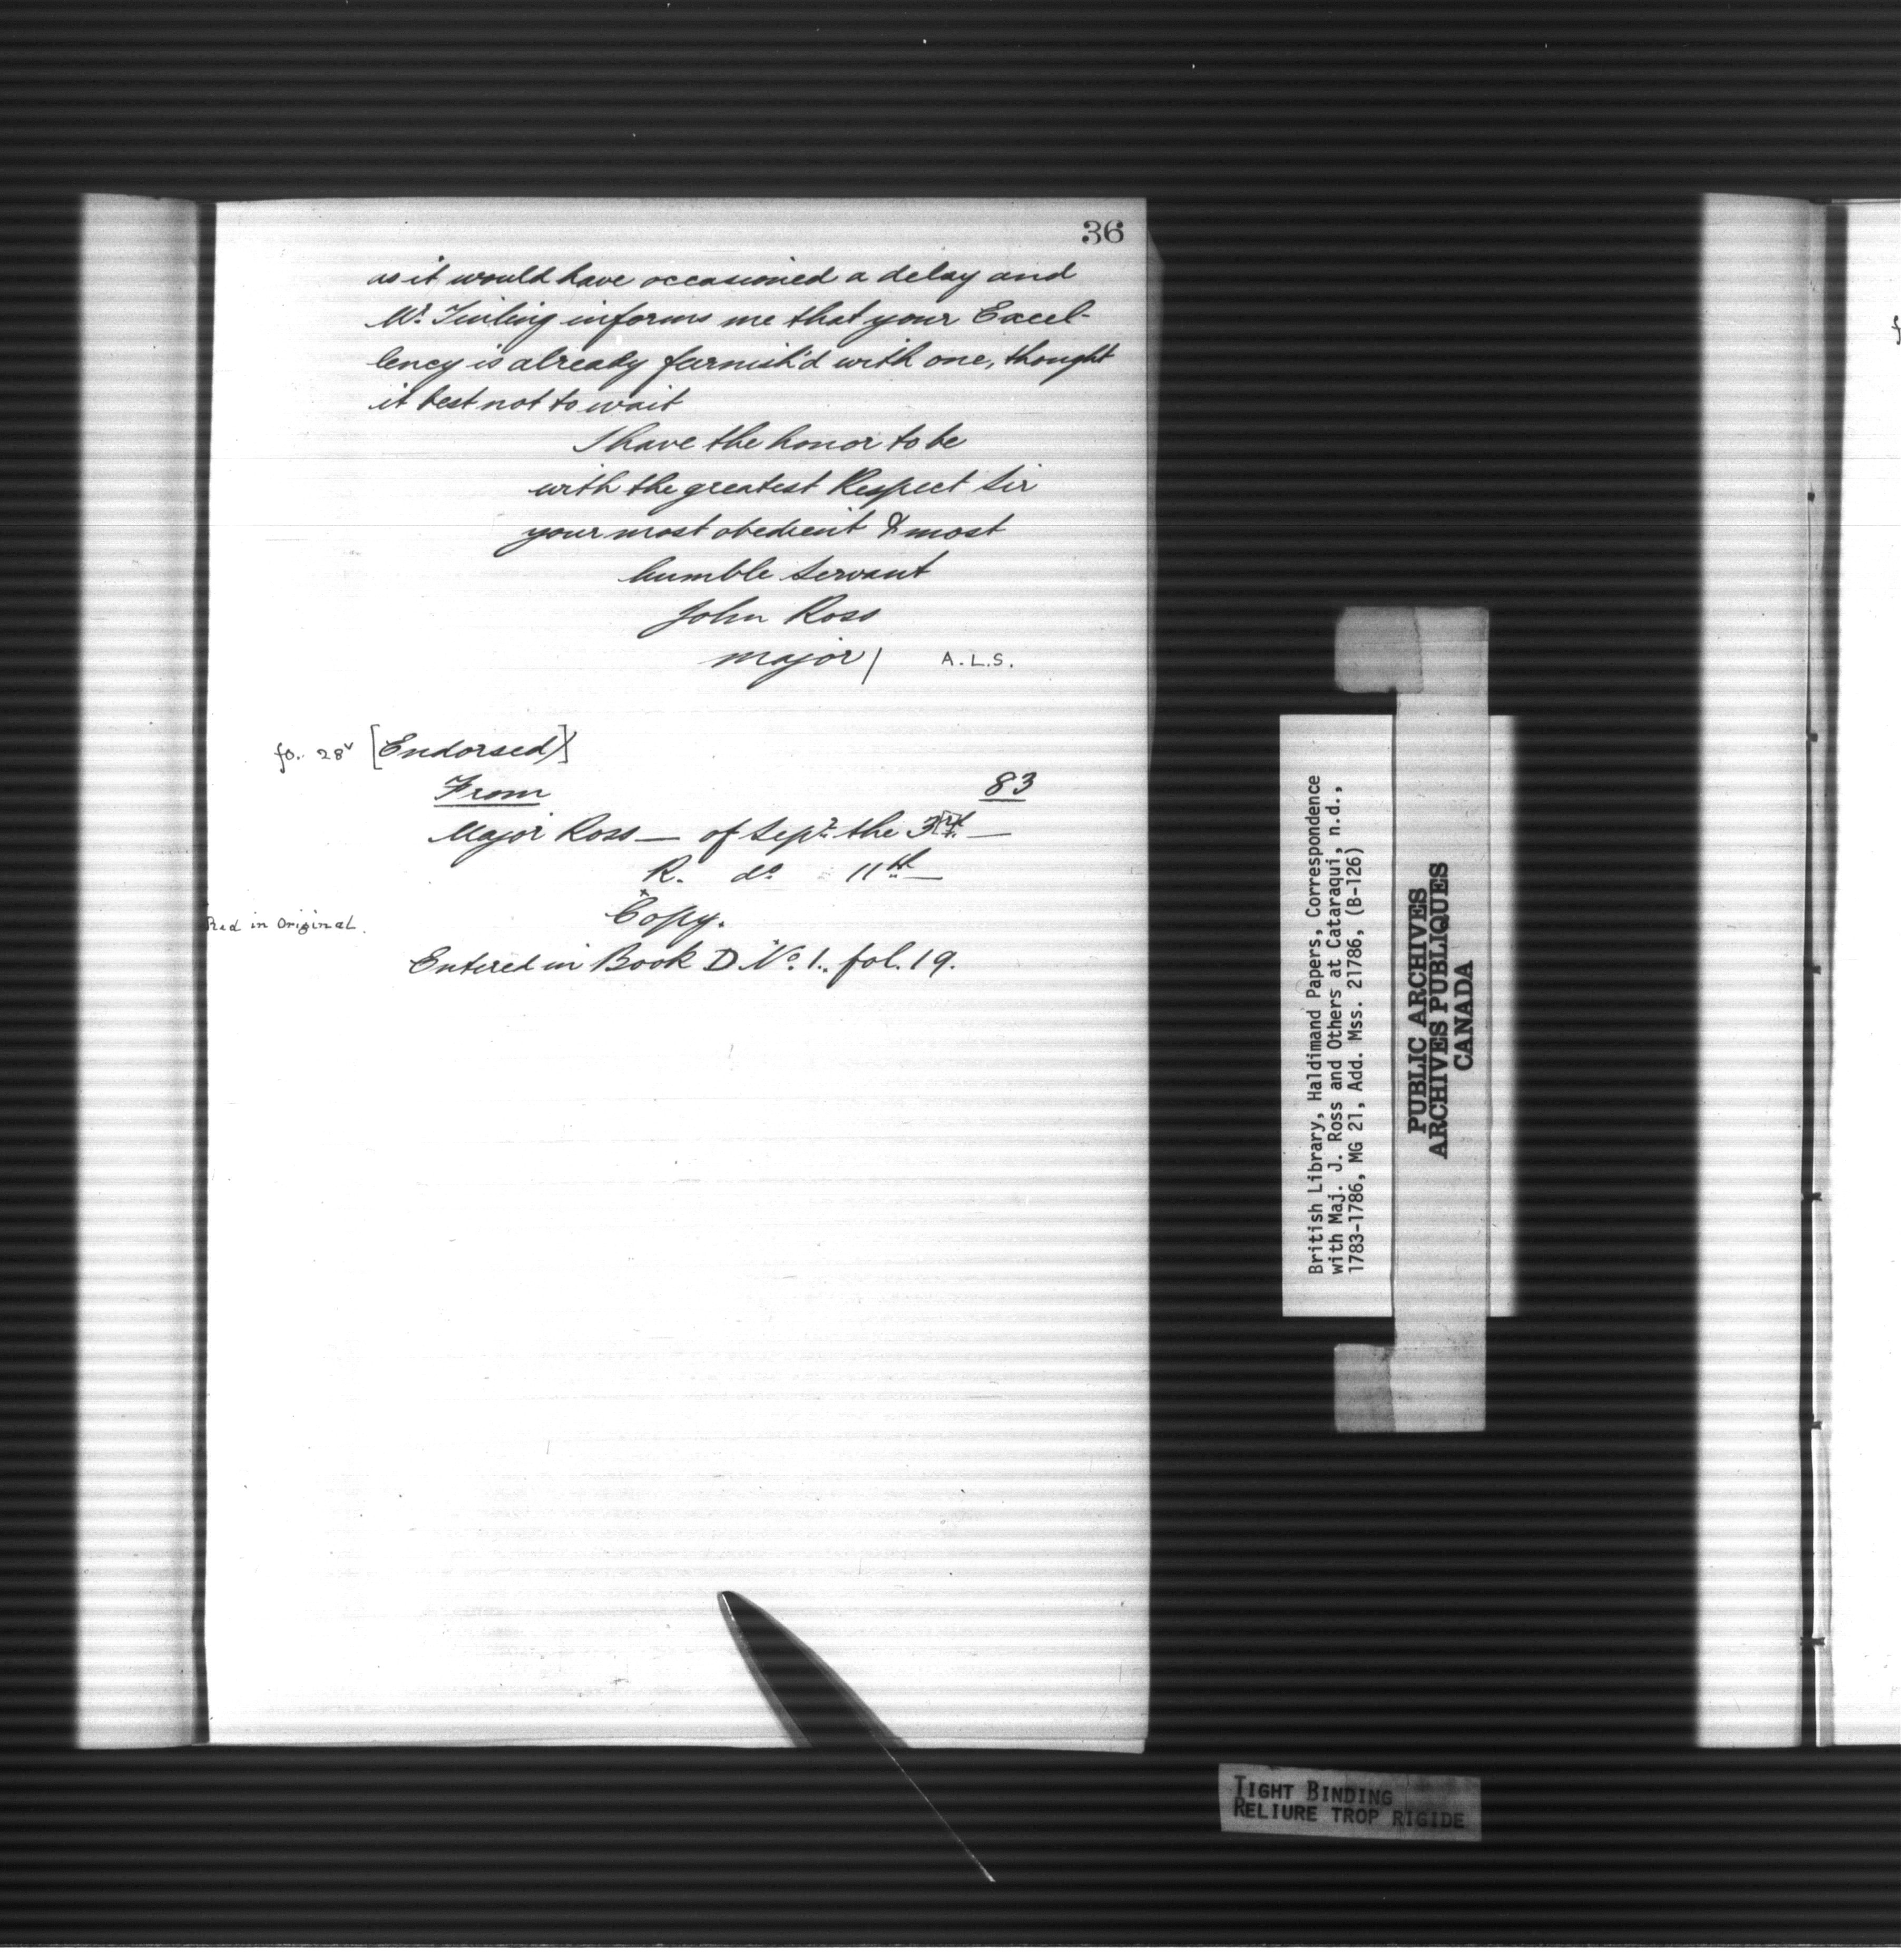 36
as it would have occasioned a delay and
Mr. Tinling informs me that your Excel-
lency is already furnish'd with one, thought
it best not to wait
I have the honor to be
with the greatest Respect Sir
your most obedient & most
humble Servant
John Ross
Major/ A.L.S.
fo. 28v [Endorsed)]
From 83
Major Ross — of Sepr. the 3rd. —
R. do. 11th. —
x
Copy.
Red in Original.
Entered in Book D No. 1. fol. 19.
British Library, Haldimand Papers, Correspondence
with Maj. J. Ross and Others at Cataraqui, n.d.,
1783-1786, MG 21, Add. Mss. 21786, (B-126)
PUBLIC ARCHIVES
ARCHIVES PUBLIQUES
CANADA
TIGHT BINDING
RELIURE TROP RIGIDE